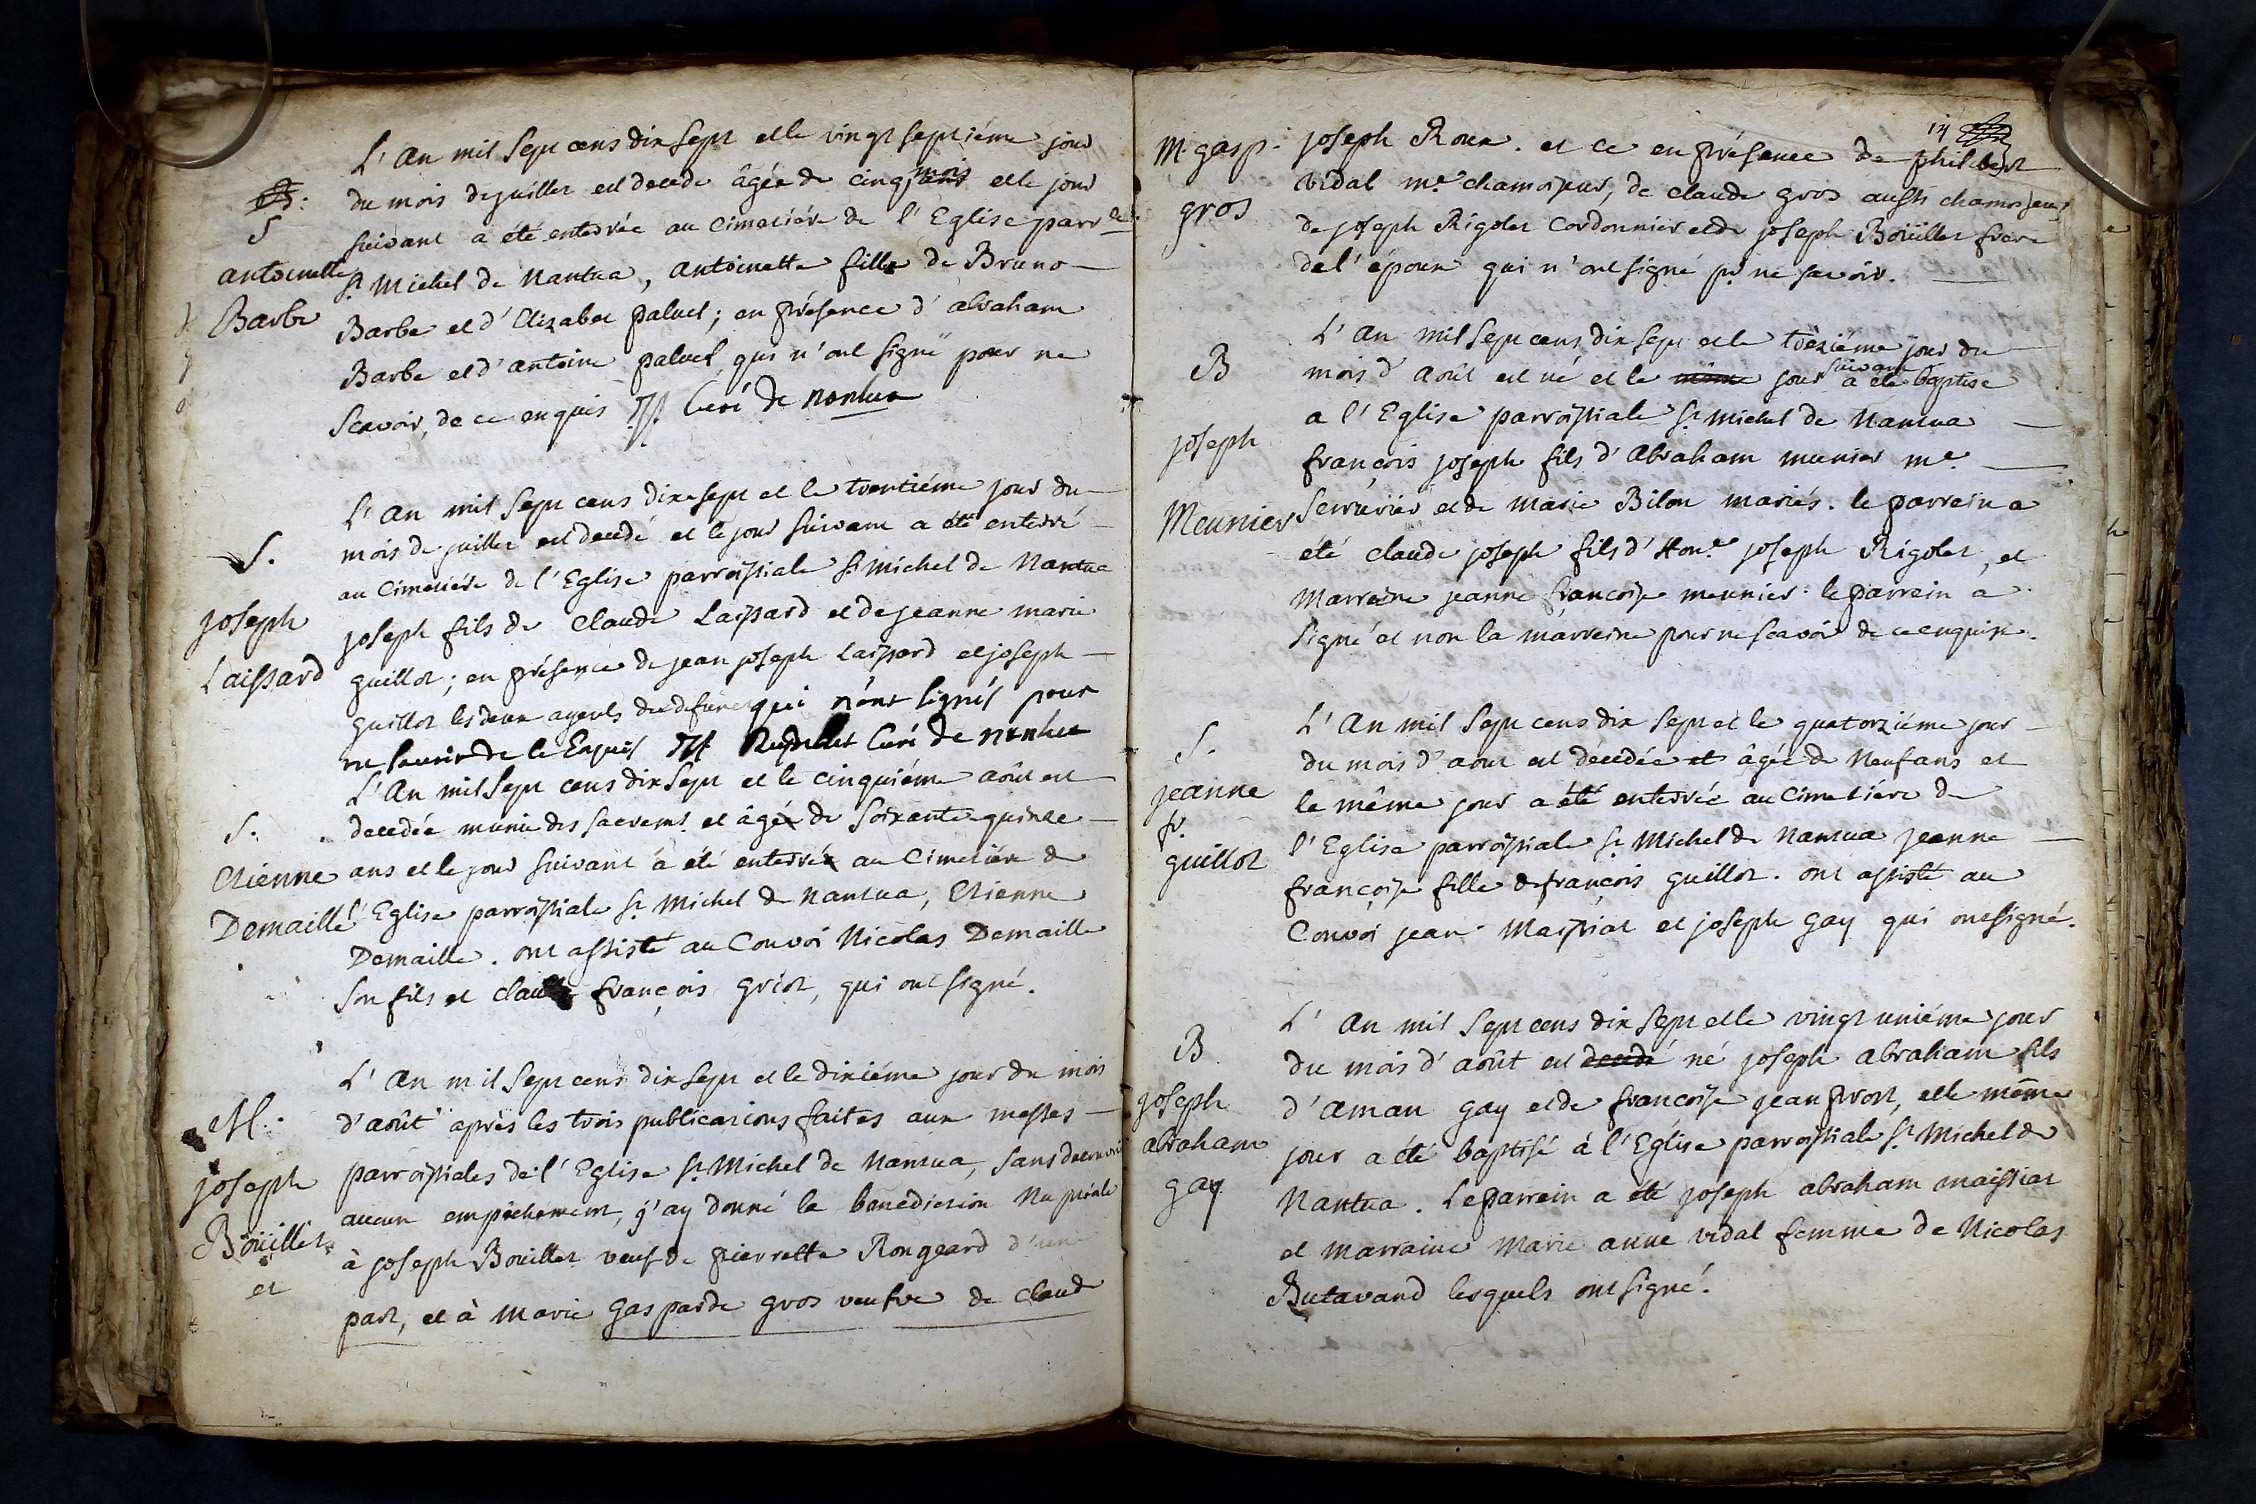 L'An mil Sept cens dix sept et le vingt septiéme jour
du mois de juillet est decede âgée de cinq ans mois et le jour
suivant a été enterrée au Cimetiére de l'Eglise parr.le
St Michel de Nantua, Antoinette fille de Bruno
Barbe et d'Elizabet paluet; en présence d'abraham
Barbe et d'antoine paluet, qui n'ont signé pour ne
Scavoir, de ce enquis Curé de nantua
S
antoinette
Barbe
L'An mil Sept cens dix sept et le trentiéme jour du
mois de juillet est decedé et le jour suivant a été enterré
au Cimetiére de l'Eglise parroissiale St Michel de Nantua
joseph fils de Claude Laissard et de jeanne marie
guillot; en présence de jean joseph Laissard et joseph
guillot les deux ayeuls du defunct qui n'ont signés pour
ne scavoir de ce Enquis Curé de nantua
S.
joseph
Laissard
L'An mil Sept cens dix Sept et le cinquiéme août est
decedée munie des sacrem.s et âgée de Soixante quinze
ans et le jour suivant a été enterrée au Cimetiére de
l'Eglise parroissiale St Michel de Nantua, Etienne
Demaille. ont assisté au Convoi Nicolas Demaille
Son fils et claude françois griot, qui ont signé.
S.
Etienne
Demaille
L'An mil Sept cens dix sept et le dixiéme jour du mois
d'août après les trois publications faites aux messes
parroissiales de l'Eglise St Michel de Nantua, sans decouvrir
aucun empêchement, j'ay donné la benediction Nuptiale
à joseph Boüillet veuf de pierrette Rongeard d'une
part, et à Marie gasparde gros veufve de Claude
M.
joseph
Boüillet
et
14
joseph Roux. et ce en présence de philibert
vidal m.e chamoiseur, de claude gros aussi chamoiseur,
de joseph Rigolet Cordonnier et de joseph Boüillet frere
de l'époux qui n'ont signé pr ne savoir.
M. gasp.
gros
L'An mil Sept cens dix sept et le treziéme jour du
mois d'août est né et le même jour suivant a été baptise
a l'Eglise parroissiale St Michel de Nantua
françois joseph fils d'Abraham munier m.e
Serrurier et de Marie Bilon mariés. le parrein a
été claude joseph fils d'Hon.e joseph Rigolet, et
Marreine jeanne francoise meunier: le parrein a
signé et non la marreine pour ne scavoir de ce enquise.
B
joseph
Meunier
L'An mil Sept cens dix sept et le quatorziéme jour
du mois d'aout est décedée et âgée de Neuf ans et
le même jour a été enterrée au Cimetiére de
l'Eglise parroissiale St Michel de Nantua jeanne
françoise fille de françois guillot. ont assisté au
Convoi jean Maissiat et joseph gay qui ont signé.
S.
jeanne
fr.
guillot
L'An mil Sept cens dix Sept et le vingt uniéme jour
du mois d'août est decedé né joseph abraham fils
d'aman gay et de françoise jean prost, et le même
jour a été baptisé à l'Eglise parroissiale St Michel de
Nantua. Le parrein a été joseph abraham maissiat
et marraine Marie anne vidal femme de Nicolas
Butavand lesquels ont signé.
B
joseph
abraham
gay